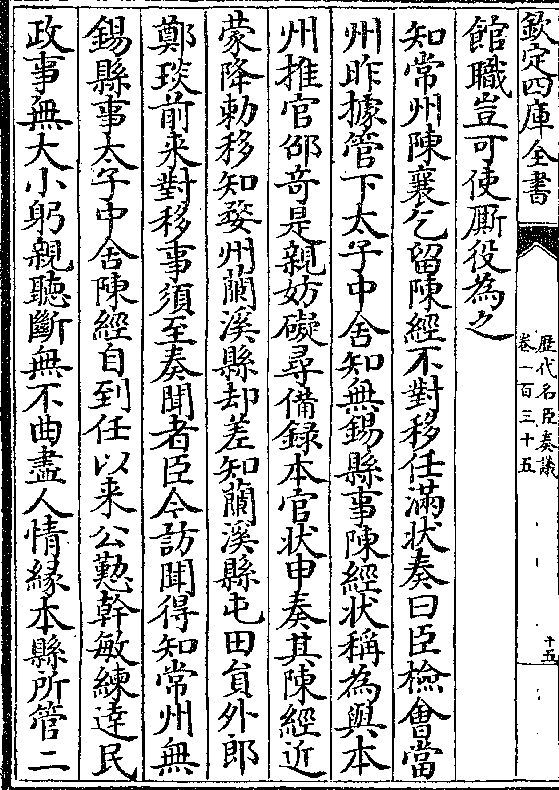 欽定四庫全書
歷代名臣奏議
卷一百三十五
十五
館職豈可使厮役為之
知常州陳襄乞留陳經不對移任滿狀奏曰臣檢會當
州昨據管下太子中舍知無錫縣事陳經狀稱為與本
州推官邵奇是親妨礙尋備録本官狀申奏其陳經近
蒙降勅移知婺州蘭溪縣却差知蘭溪縣屯田員外郎
鄭琰前来對移事須至奏聞者臣今訪聞得知常州無
錫縣事太子中舍陳經自到任以来公勤幹敏練達民
政事無大小躬親聽斷無不曲盡人情緣本縣所管二